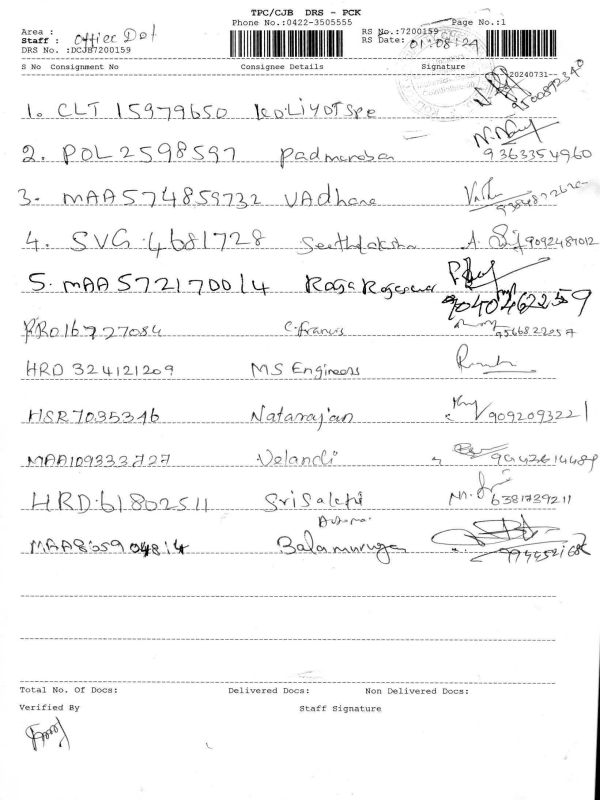 TPC/CJB DRS - PCK
Phone No.:0422-3505555 Page No.:1
Area :
Staff : office Del
DRS No. :DCJB7200159
RS No.:7200159
RS Date: 01/08/24
S No Consignment No Consignee Details Signature
20240731--
1. CLT 15979650 9500872340
2. POL 2598597 Padmanaban 9363354960
3. MAA574859732 VAdhana
4. SVG:4681728 9092487012
5. MAA 572170014 Raja Rajeswar 9040462259
PRO16727084 C.francis 9566822057
HRD 324121209 MS Engineers
HSR7035346 Natarajan 9092093221
MAA109333727 Velandi
HRD.61802511 Sri Sakthi 6381739211
Balamurugan
Total No. Of Docs: Delivered Docs: Non Delivered Docs:
Verified By Staff Signature